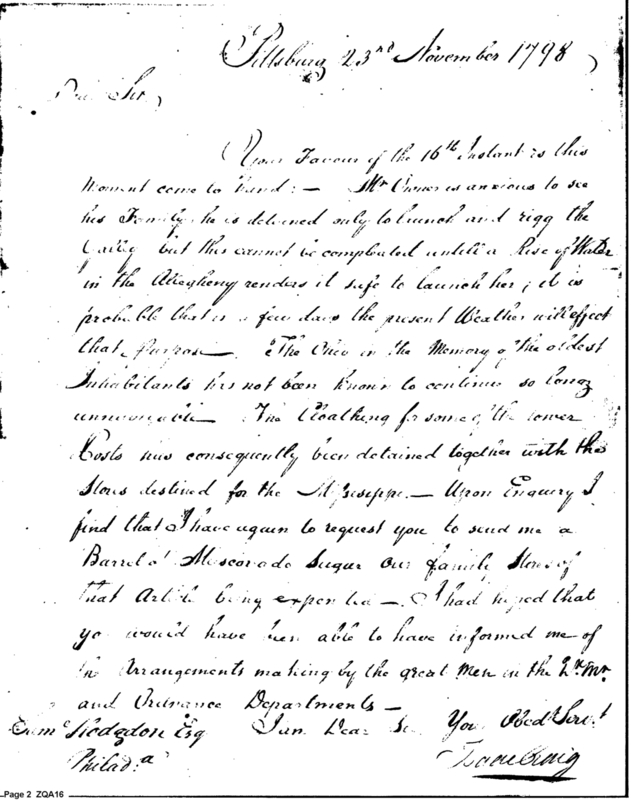 Pittsburg 23rd November 1798
Dear Sir,
Your Favour of the 16th Instant is this
Moment come to hand: — Mr
is anxious to see
his Family, he is detained only to launch and rigg the
Galley but this cannot be compleated untill a Rise of Water
in the Allegheny renders it safe to launch her; it is
probable that in a few days the present Weather will effect
that Purpose. The Ohio in the Memory of the oldest
Inhabitants has not been known to continue so long
unnavigable — The Cloathing for some of the lower
Posts has consequently been detained together with the
Stores destined for the Missisippi — Upon Enquiry I
find that I have again to request you to send me a
Barrel of Muscovado Sugar our family Stores of
that Article being expended — I had hoped that
you would have been able to have informed me of
the Arrangements making by the great Men in the Qr Mr
and Ordnance Departments —
I am Dear Sir Your Obedt Servt
Isaac Craig
Saml Hodgdon Esq
Philada
Page 2 ZQA16